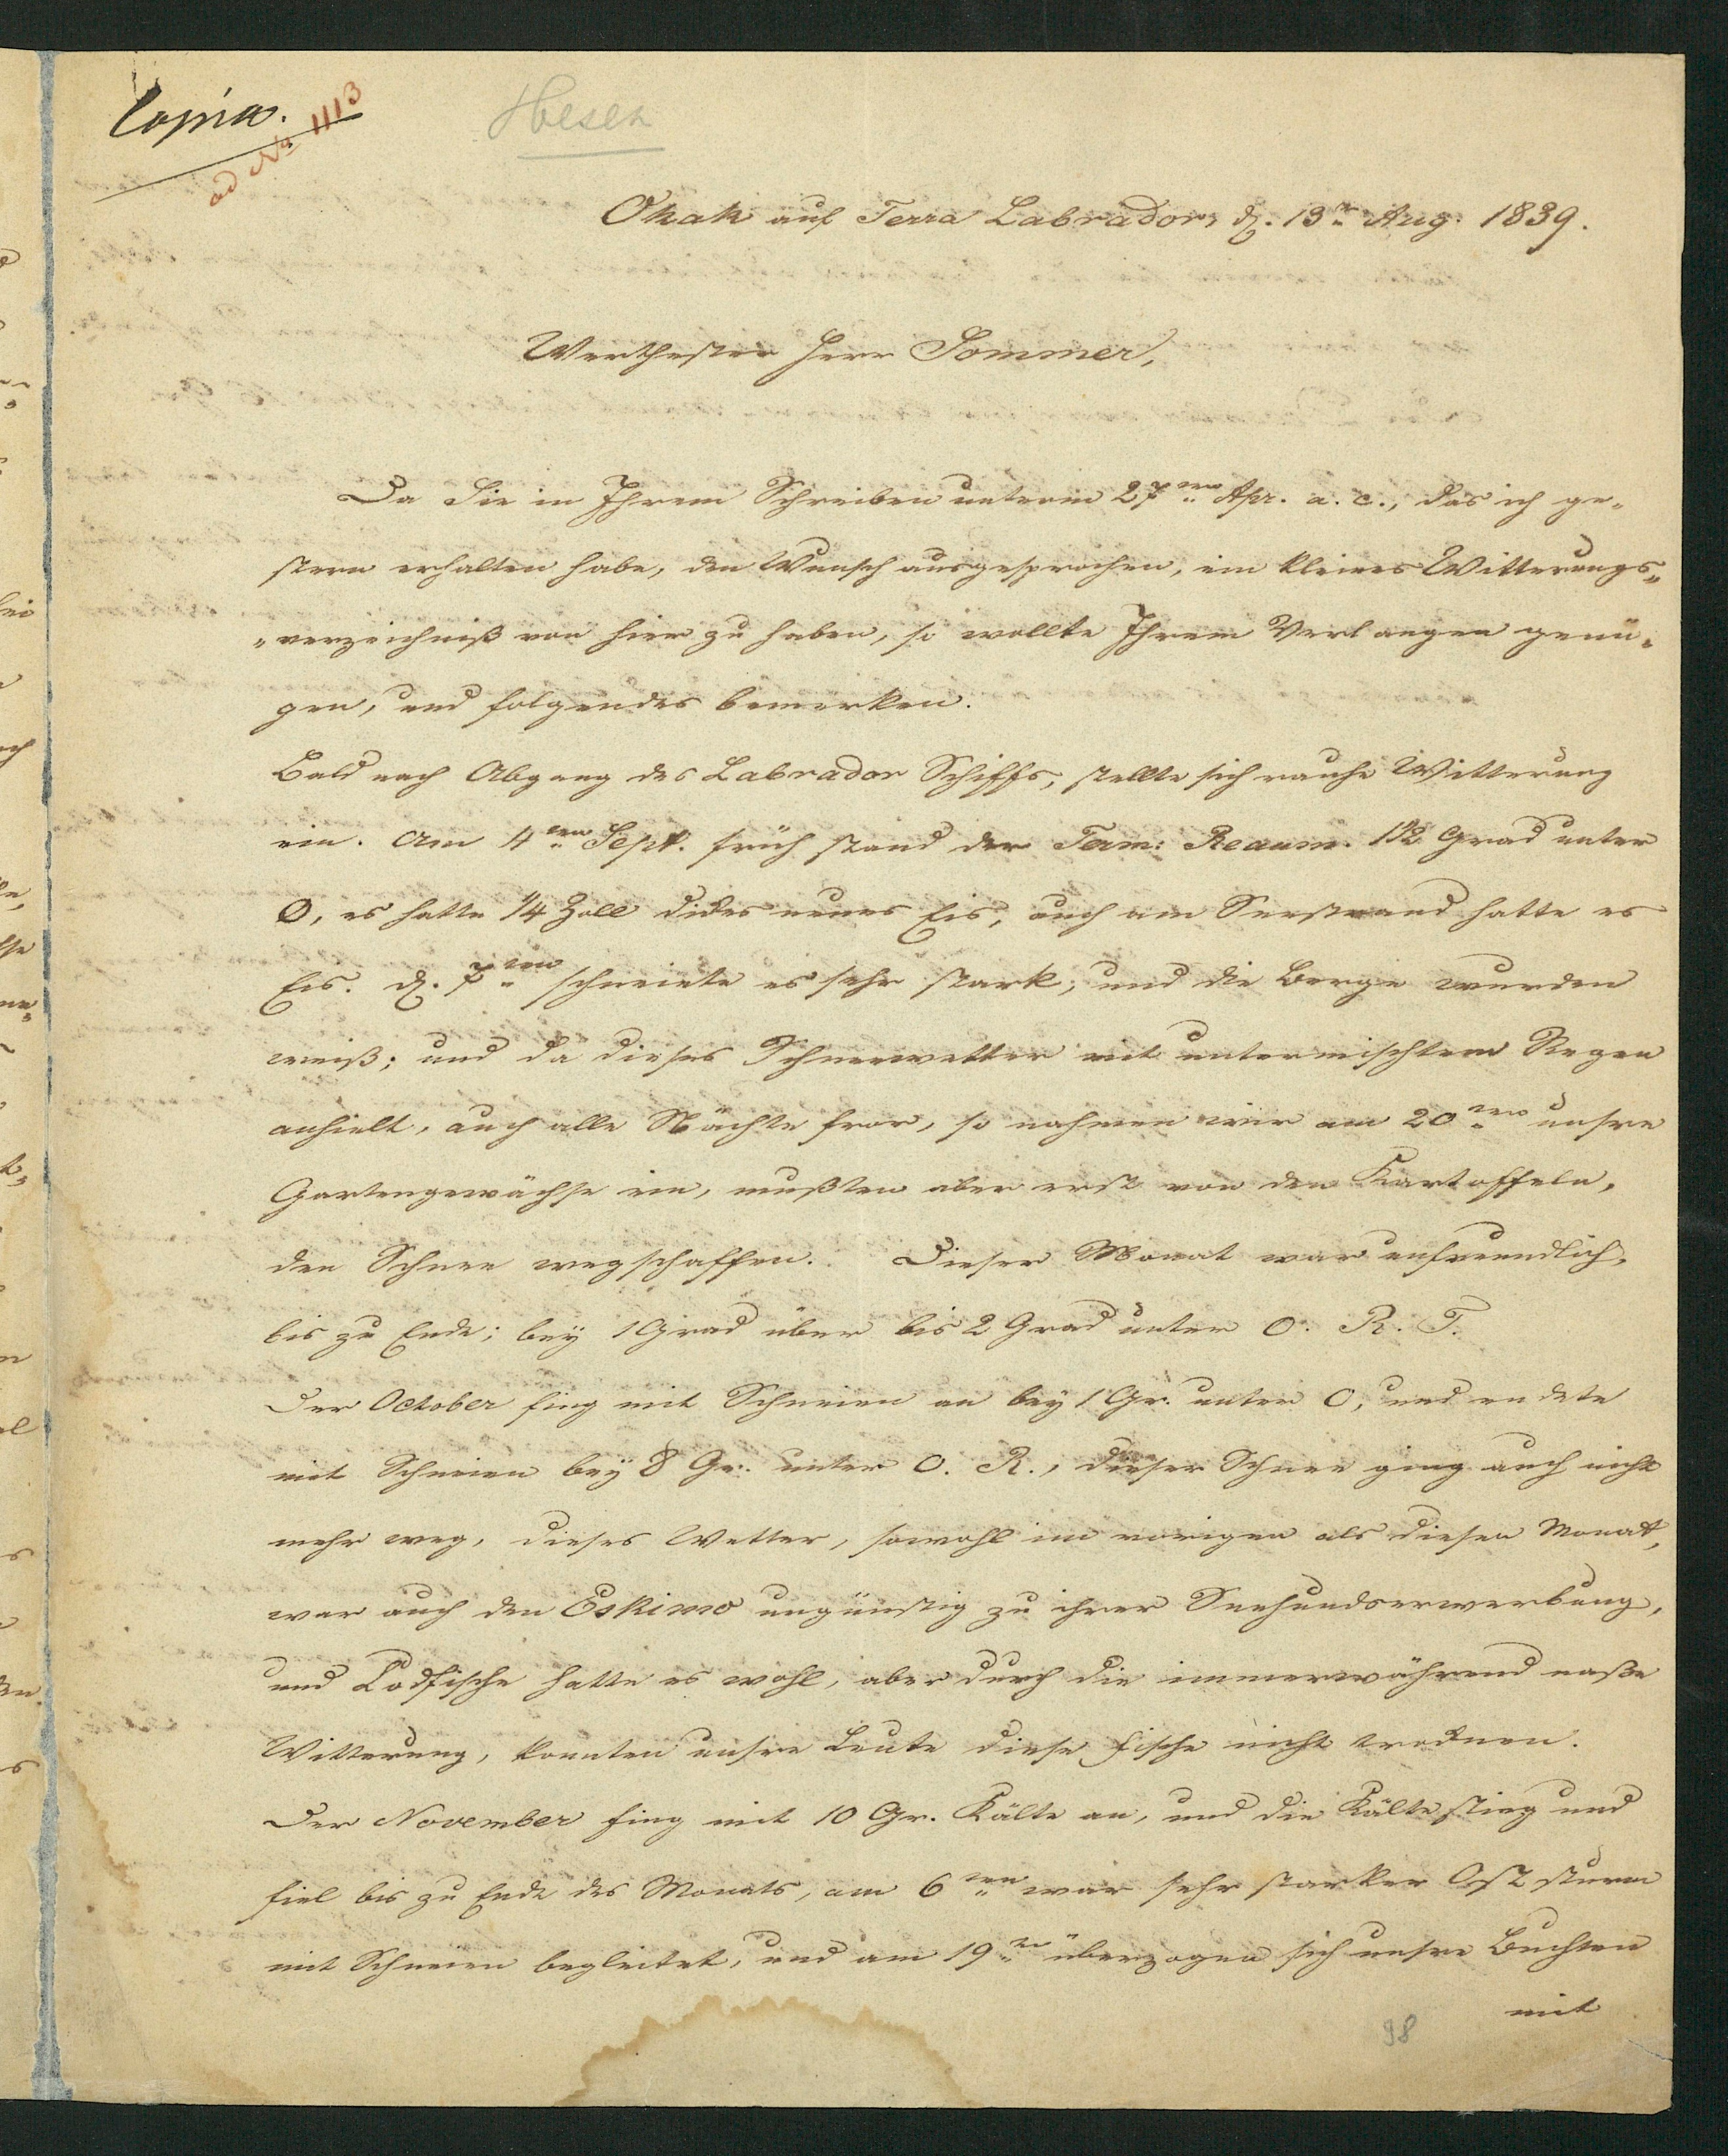 Copia.
ad No 1113
Hesen
Okak auf Terra Labrador, d. 13n Aug. 1839.
Werthester Herr Sommer,
Da Sie in Ihrem Schreiben unterm 27ten Apr. a. c., das ich ge-
stern erhalten habe, den Wunsch ausgesprochen, ein kleines Witterungs-
-verzeichniß von hier zu haben, so wollte Ihrem Verlangen genü-
gen, und folgendes bemerken.
Bald nach Abgang des Labrador Schiffs, stellte sich rauhe Witterung
ein. Am 4ten Sept. früh stand der Term: Reaum. 1½ Grad unter
0, es hatte ¼ Zoll dickes neues Eis, auch am Seestrand hatte es
Eis. d. 7ten schneiete es sehr stark, und die Berge wurden
weiß; und da dieses Schneewetter mit untermischtem Regen
anhielt, auch alle Nächte fror, so nahmen wir am 20ten unsre
Gartengewächse ein, mußten aber erst von den Kartoffeln,
den Schnee wegschaffen. Dieser Monat war unfreundlich,
bis zu Ende; bey 1 Grad über bis 2 Grad unter 0. R. T.
Der October fing mit Schneien an bey 1 Gr. unter 0, und endete
mit Schneien bey 8 Gr. unter 0. R., dieser Schnee ging auch nicht
mehr weg, dieses Wetter, sowohl im vorigen als diesen Monat,
war auch den Eskimo ungünstig zu ihrer Seehundserwerbung,
und Codfische hatte es wohl, aber durch die immerwährend naße
Witterung, konnten unsre Leute diese Fische nicht trocknen.
Der November fing mit 10 Gr. Kälte an, und die Kälte stieg und
fiel bis zu Ende des Monats, am 6ten war sehr starker Ost sturm
mit Schneien begleitet, und am 19n überzogen sich unsre Buchten
mit
98